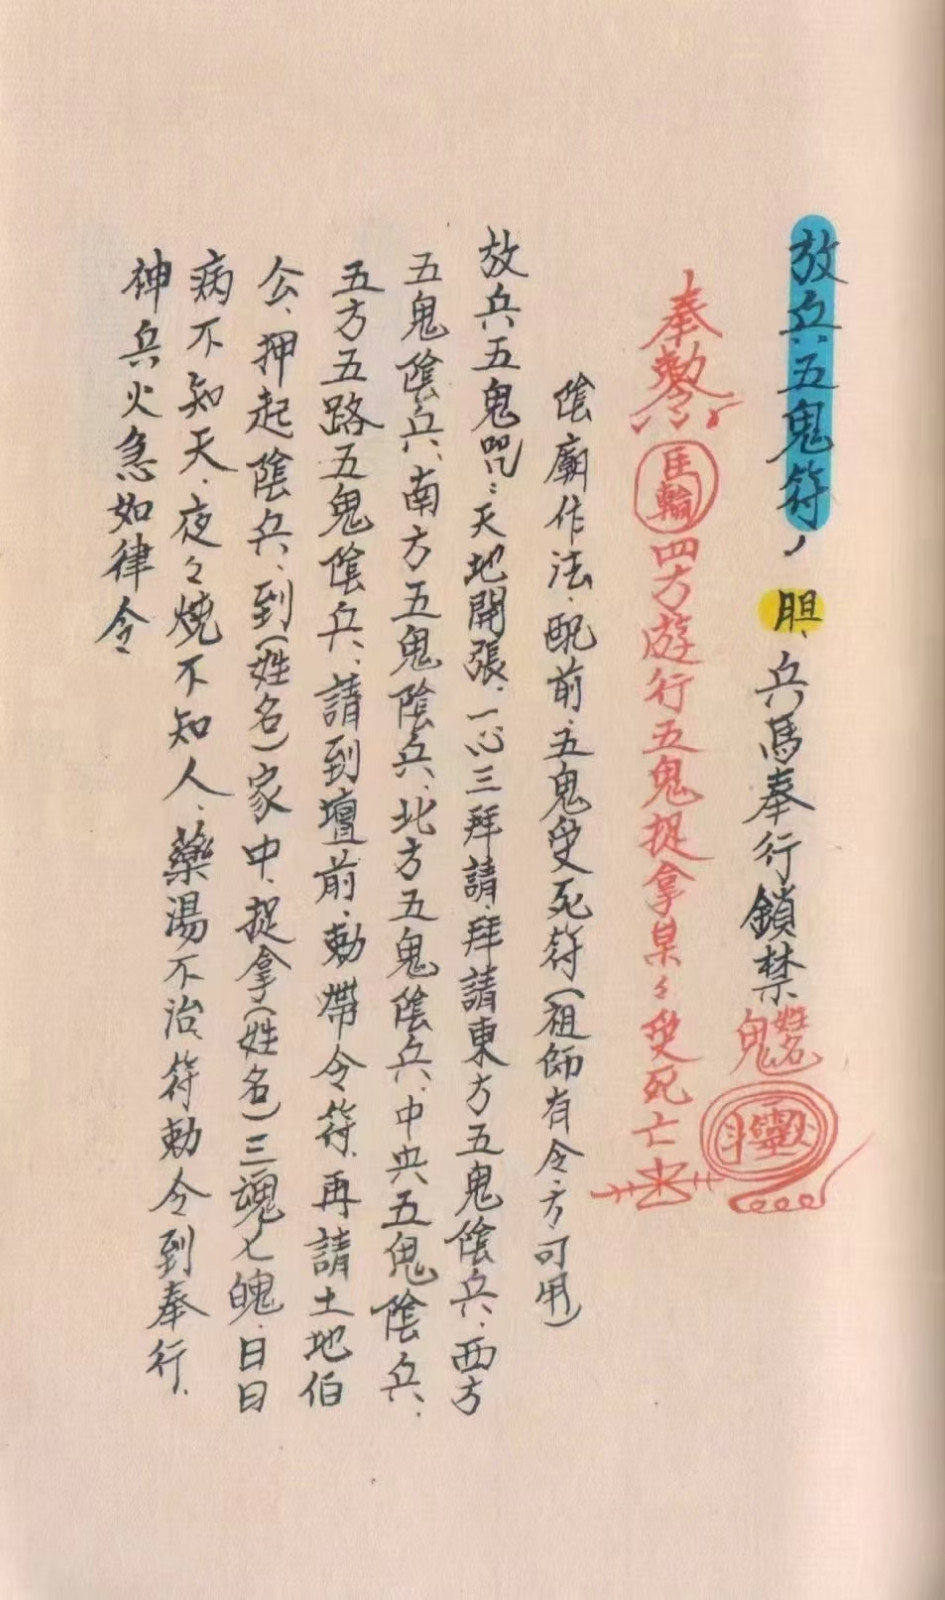 放兵五鬼符
胆、兵馬奉行鎖禁
姓名
鬼
斗靈
奉勅
輪
四方遊行五鬼捉拿某々受死亡
陰廟作法、配前、五鬼受死符(祖師有令、方可用)
放兵五鬼咒:天地開張、一心三拜請、拜請東方五鬼陰兵、西方
五鬼陰兵、南方五鬼陰兵、北方五鬼陰兵、中央五鬼陰兵、
五方五路五鬼陰兵、請到壇前、勅帶令符、再請土地伯
公、押起陰兵、到(姓名)家中、捉拿(姓名)三魂七魄、日日
病不知天、夜々燒不知人、藥湯不治、符勅令到奉行、
神兵火急如律令